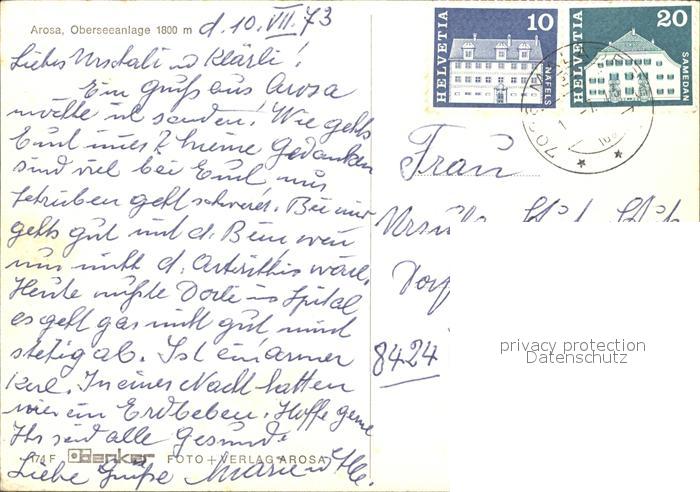 Arosa, Oberseeanlage 1800 m
d. 10. VII. 73
Liebes Urseli u Klärli!
Ein Gruss aus Arosa
möchte ich senden! Wie gehts
Euch immer? Meine Gedanken
sind viel bei Euch, nur
schreiben geht schwerer. Bei mir
gehts gut mit d. Bein, wen
nur nicht d. Arthritis wäre.
Heute musste Dorli ins Spital
es geht gar nicht gut nimmt
stetig ab. Ist ein armer
Kerl. In einer Nacht hatten
wir ein Erdbeben. Hoffe gerne
Ihr seid alle gesund.
Liebe Grüsse Marie u
174 F Benker FOTO + VERLAG AROSA
HELVETIA 10 NÄFELS
HELVETIA 20 SAMEDAN
7056
Frau
Dorf
8424
privacy protection
Datenschutz